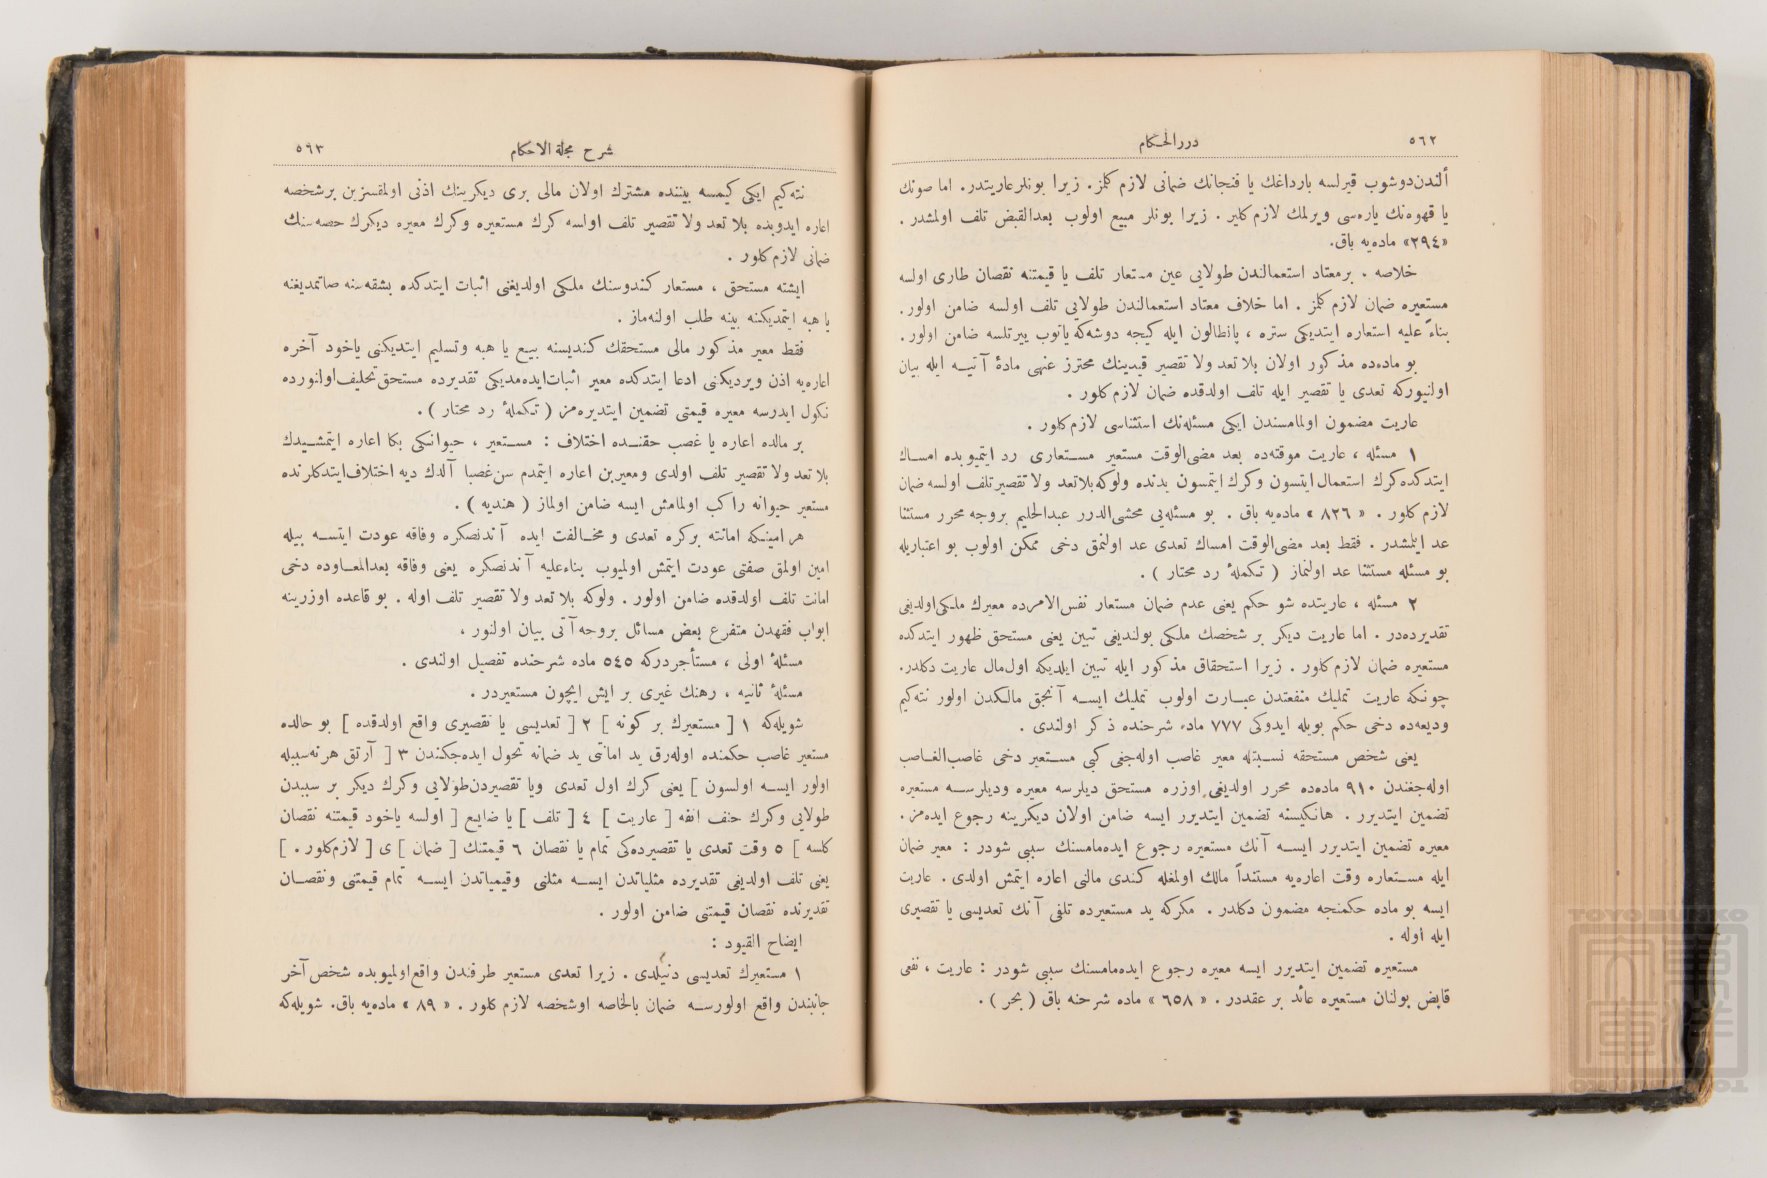 ٥٦٢
دررالحكام
ألندن دوشوب قيرلسه بارداغك يا فنجانك ضمانى لازم كلمز. زيرا بونلر عاريتدر. اما صونك
يا قهوه‌نك پاره‌سى ويرلمك لازم كلير . زيرا بونلر مبيع اولوب بعدالقبض تلف اولمشدر .
«٢٩٤» ماده‌يه باق.
خلاصه . بر معتاد استعمالندن طولايى عين مستعار تلف يا قيمتنه نقصان طارى اولسه
مستعيره ضمان لازم كلمز . اما خلاف معتاد استعمالندن طولايى تلف اولسه ضامن اولور.
بناءً عليه استعاره ايتديكى ستره ، پانطالون ايله كيجه دوشه‌كه ياتوب ييرتلسه ضامن اولور.
بو ماده‌ده مذكور اولان بلا تعد ولا تقصير قيدينك محترز عنهى مادهٔ آتيـه ايله بيان
اولنيوركه تعدى يا تقصير ايله تلف اولدقده ضمان لازم كلور .
عاريت مضمون اولمامسندن ايكى مسئله‌نك استثناسى لازم كلور .
١ مسئله ، عاريت موقته‌ده بعد مضى‌الوقت مستعير مستعارى رد ايتميوبده امساك
ايتدكده كرك استعمال ايتسون وكرك ايتمسون يدنده ولوكه بلا تعد ولا تقصير تلف اولسه ضمان
لازم كلور . « ٨٢٦ » ماده‌يه باق . بو مسئله‌يى محشى‌الدرر عبدالحليم بروجه محرر مستثنا
عد ايلمشدر . فقط بعد مضى‌الوقت امساك تعدى عد اولنمق دخى ممكن اولوب بو اعتباريله
بو مسئله مستثنا عد اولنماز ( تكملهٔ رد محتار ) .
٢ مسئله ، عاريتده شو حكم يعنى عدم ضمان مستعار نفس‌الامرده معيرك ملكى اولديغى
تقديرده‌در . اما عاريت ديكر بر شخصك ملكى بولنديغى تبين يعنى مستحق ظهور ايتدكده
مستعيره ضمان لازم كلور . زيرا استحقاق مذكور ايله تبين ايلديكه اول مال عاريت دكلدر.
چونكه عاريت تمليك منفعتدن عبـارت اولوب تمليك ايسـه آنجق مالكدن اولور نته‌كيم
وديعه‌ده دخى حكم بويله ايدوكى ٧٧٧ ماده شرحنده ذكر اولندى .
يعنى شخص مستحقه نسـبتله معير غاصب اوله‌جغى كبى مسـتعير دخى غاصب‌الغـاصب
اوله‌جغندن ٩١٠ ماده‌ده محرر اولديغى اوزره مستحق ديلرسه معيره وديلرسـه مستعيره
تضمين ايتديرر . هانكيسنه تضمين ايتديرر ايسه ضامن اولان ديكرينه رجوع ايده‌مز.
معيره تضمين ايتديرر ايسـه آنك مستعيره رجوع ايده‌مامسنك سببى شودر : معير ضمان
ايله مستعاره وقت اعاره‌يه مستنداً مالك اولمغله كندى مالنى اعاره ايتمش اولدى . عاريت
ايسه بو ماده حكمنجه مضمون دكلدر . مكركه يد مستعيرده تلفى آنك تعديسى يا تقصيرى
ايله اوله .
مستعيره تضمين ايتديرر ايسه معيره رجوع ايده‌مامسنك سببى شودر : عاريت ، نفعى
قابض بولنان مستعيره عائد بر عقددر . « ٦٥٨ » ماده شرحنه باق ( بحر ) .
شرح مجلة الاحكام
٥٦٣
نته‌كيم ايكى كيمسه بيننده مشترك اولان مالى برى ديكرينك اذنى اولمقسزين بر شخصه
اعاره ايدوبده بلا تعد ولا تقصير تلف اولسه كرك مستعيره وكرك معيره ديكرك حصه‌سنك
ضمانى لازم كلور .
ايشته مستحق ، مستعار كندوسنك ملكى اولديغنى اثبات ايتدكده بشقه‌سنه صاتمديغنه
يا هبه ايتمديكنه بينه طلب اولنه‌ماز .
فقط معير مذكور مالى مستحقك كنديسنه بيـع يا هبه وتسليم ايتديكنى ياخود آخره
اعاره‌يه اذن ويرديكنى ادعا ايتدكده معير اثبات ايده‌مديكى تقديرده مستحق تحليف اولنورده
نكول ايدرسه معيره قيمتى تضمين ايتديره‌مز ( تكملهٔ رد محتار ) .
بر مالده اعاره يا غصب حقنـده اختلاف : مسـتعير ، حيوانـكى بكا اعاره ايتمشـيدك
بلا تعد ولا تقصير تلف اولدى ومعير بن اعاره ايتمدم سن غصبا آلدك ديه اختلاف ايتدكلرنده
مستعير حيوانه راكب اولمامش ايسه ضامن اولماز ( هنديه ) .
هر امينكه امانته بر كره تعدى و مخـالفت ايده آندنصكره وفاقه عودت ايتسـه بيله
امين اولمق صفتى عودت ايتمش اولميوب بناءعليه آندنصكره يعنى وفاقه بعدالمعـاوده دخى
امانت تلف اولدقده ضامن اولور . ولوكه بلا تعد ولا تقصير تلف اوله . بو قاعده اوزرينه
ابواب فقهدن متفرع بعض مسائل بروجه آتى بيان اولنور .
مسئلهٔ اولى ، مستأجردركه ٥٤٥ ماده شرحنده تفصيل اولندى .
مسئلهٔ ثانيه ، رهنك غيرى بر ايش ايچون مستعيردر .
شويله‌كه ١ [ مستعيرك بر كونه ] ٢ [ تعديسى يا تقصيرى واقع اولدقده ] بو حالده
مستعير غاصب حكمنده اوله‌رق يد امانتى يد ضمانه تحول ايده‌جكندن ٣ [ آرتق هر نه‌سببله
اولور ايسـه اولسون ] يعنى كرك اول تعدى ويا تقصيردن طولايى وكرك ديكر بر سببدن
طولايى وكرك حتف انفه [ عاريت ] ٤ [ تلف ] يا ضايـع [ اولسه ياخود قيمتنه نقصان
كلسه ] ٥ وقت تعدى يا تقصيرده‌كى تمام يا نقصان ٦ قيمتنك [ ضمان ] ى [ لازم كلور . ]
يعنى تلف اولديغى تقديرده مثلياتدن ايسـه مثلنى وقيمياتدن ايسـه تمام قيمتنى ونقصـان
تقديرنده نقصان قيمتنى ضامن اولور .
ايضاح القيود :
١ مستعيرك تعديسى دنيلدى . زيرا تعدى مستعير طرفندن واقع اولميوبده شخص آخر
جانبندن واقع اولورسـه ضمان بالخاصه اوشخصه لازم كلور . « ٨٩ » ماده‌يه باق. شويله‌كه
TOYO BUNKO